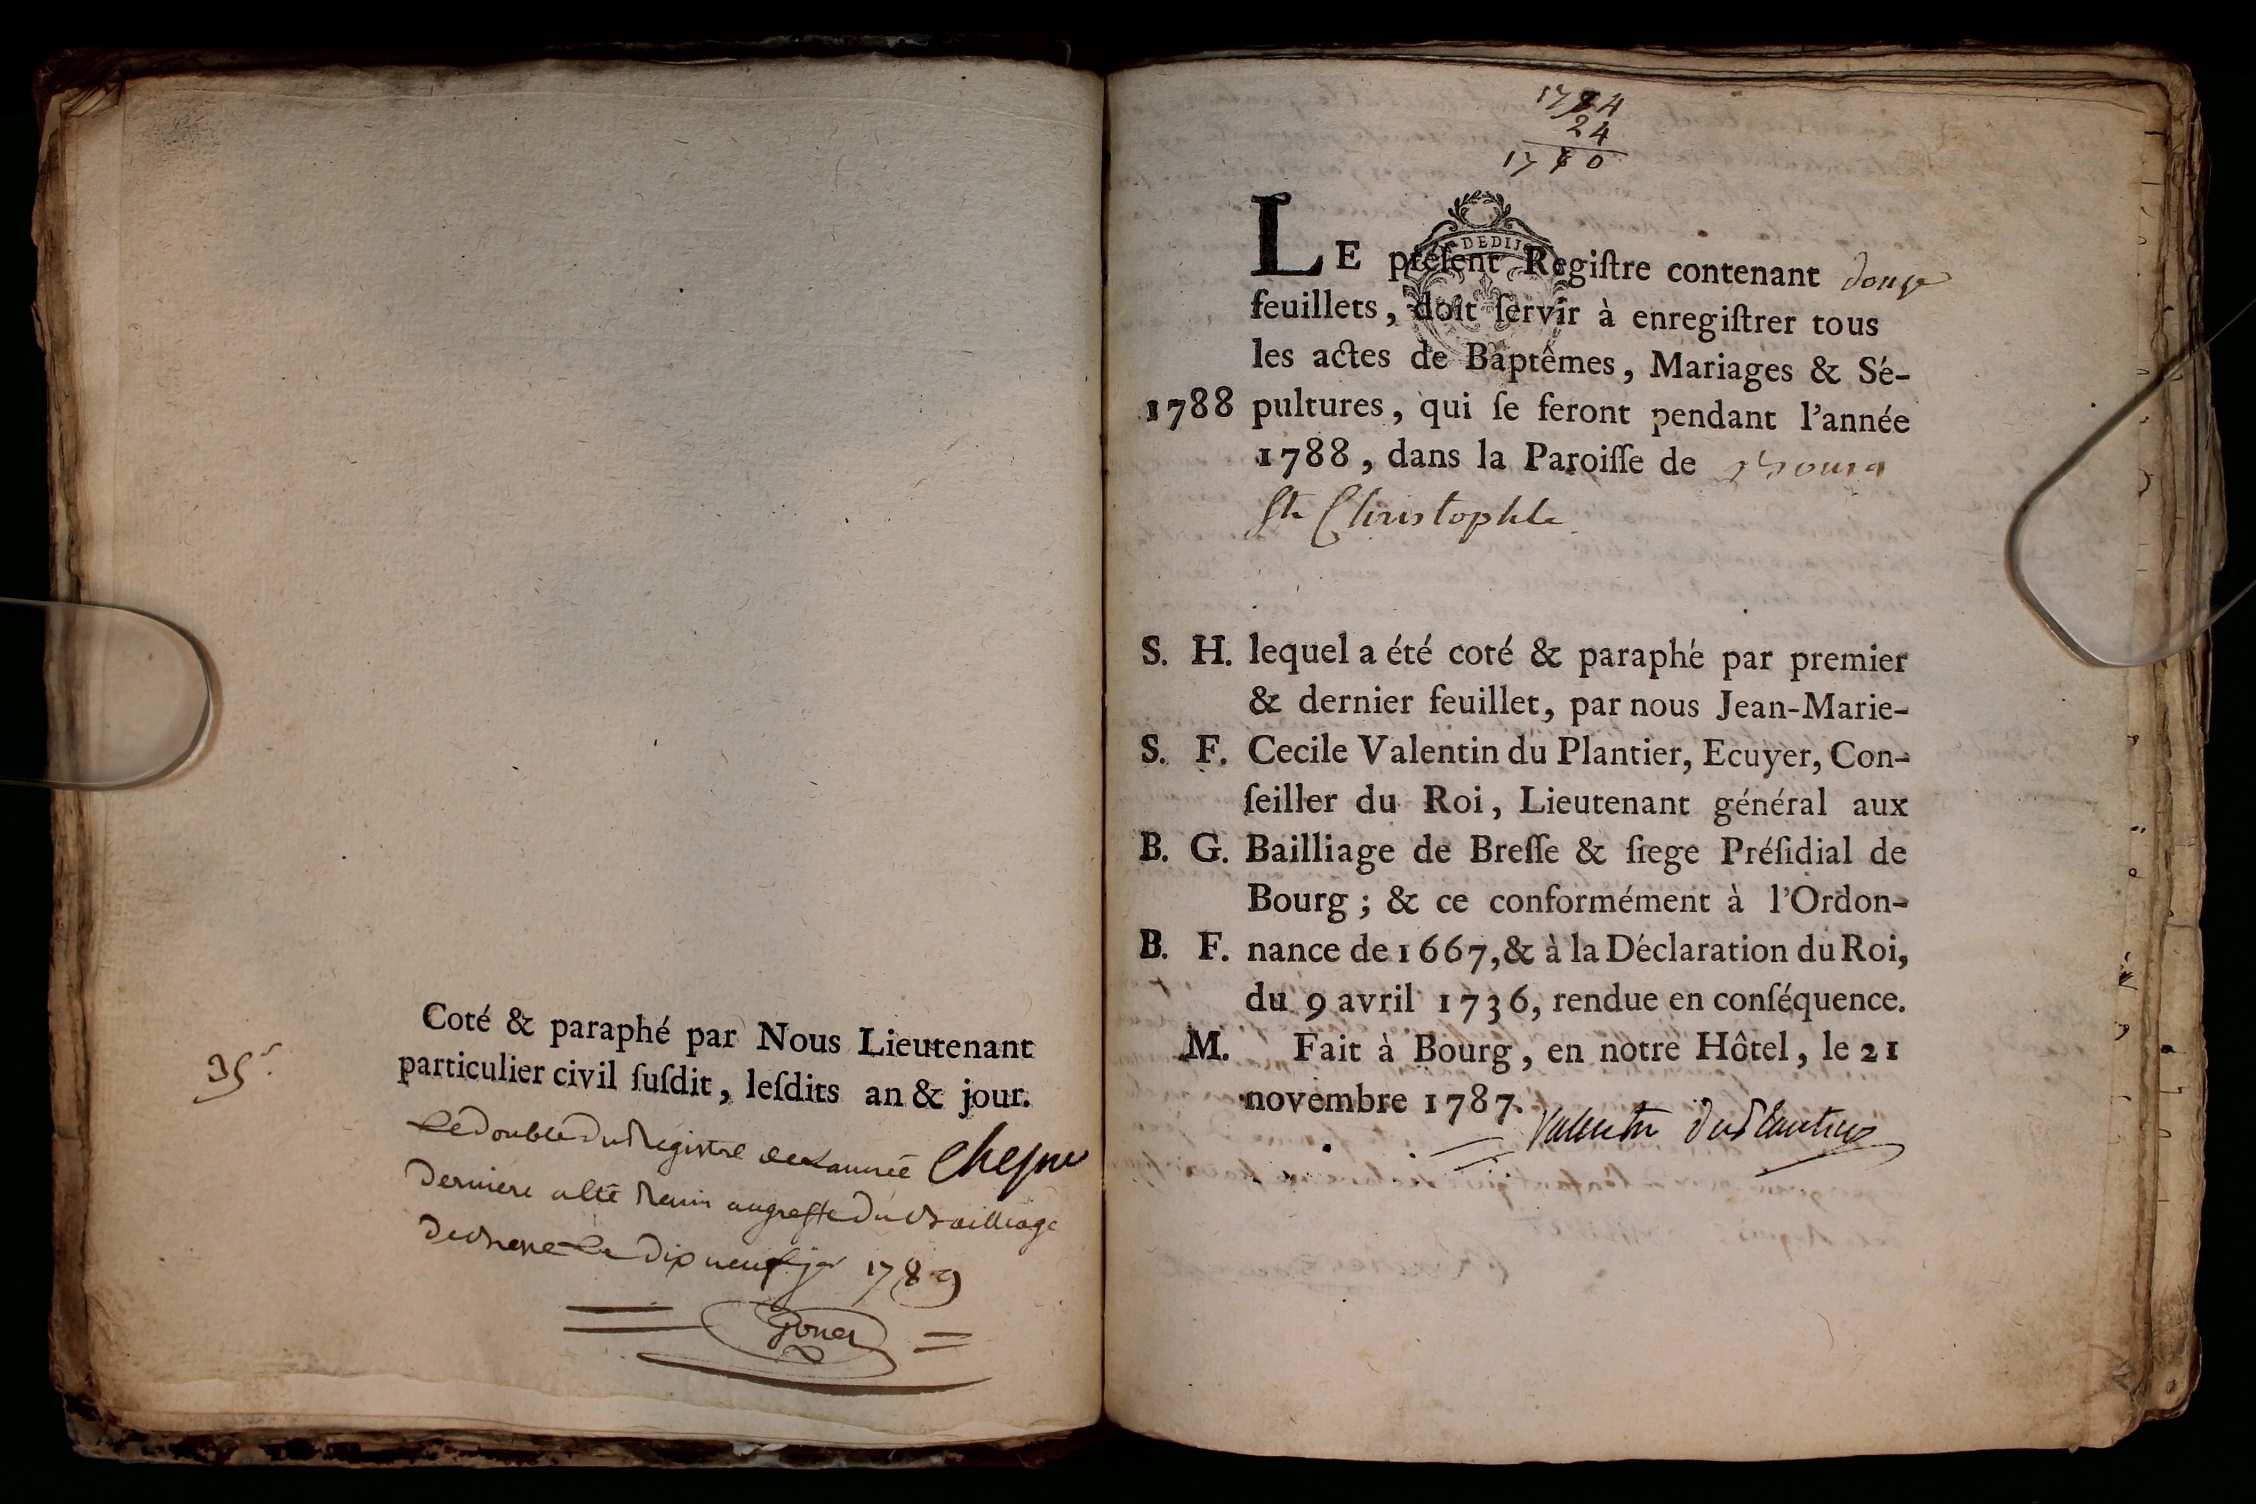 Coté & paraphé par Nous Lieutenant
particulier civil ſuſdit, leſdits an & jour.
35.
Le double du Registre de Lannée Chesne
Derniere a Eté Remis au greffe du Bailliage
de Bresse Le dix neuf jer 1789
1784
24
1760
LE préſent Regiſtre contenant douze
feuillets, doit ſervir à enregiſtrer tous
les actes de Baptêmes, Mariages & Sé-
1788 pultures, qui ſe feront pendant l'année
1788, dans la Paroiſſe de Bourg
St Christophle
S. H. lequel a été coté & paraphé par premier
& dernier feuillet, par nous Jean-Marie-
S. F. Cecile Valentin du Plantier, Ecuyer, Con-
ſeiller du Roi, Lieutenant général aux
B. G. Bailliage de Breſſe & ſiege Préſidial de
Bourg ; & ce conformément à l'Ordon-
B. F. nance de 1667, & à la Déclaration du Roi,
du 9 avril 1736, rendue en conſéquence.
M. Fait à Bourg, en notre Hôtel, le 21
novembre 1787.
Valentin duPlantier